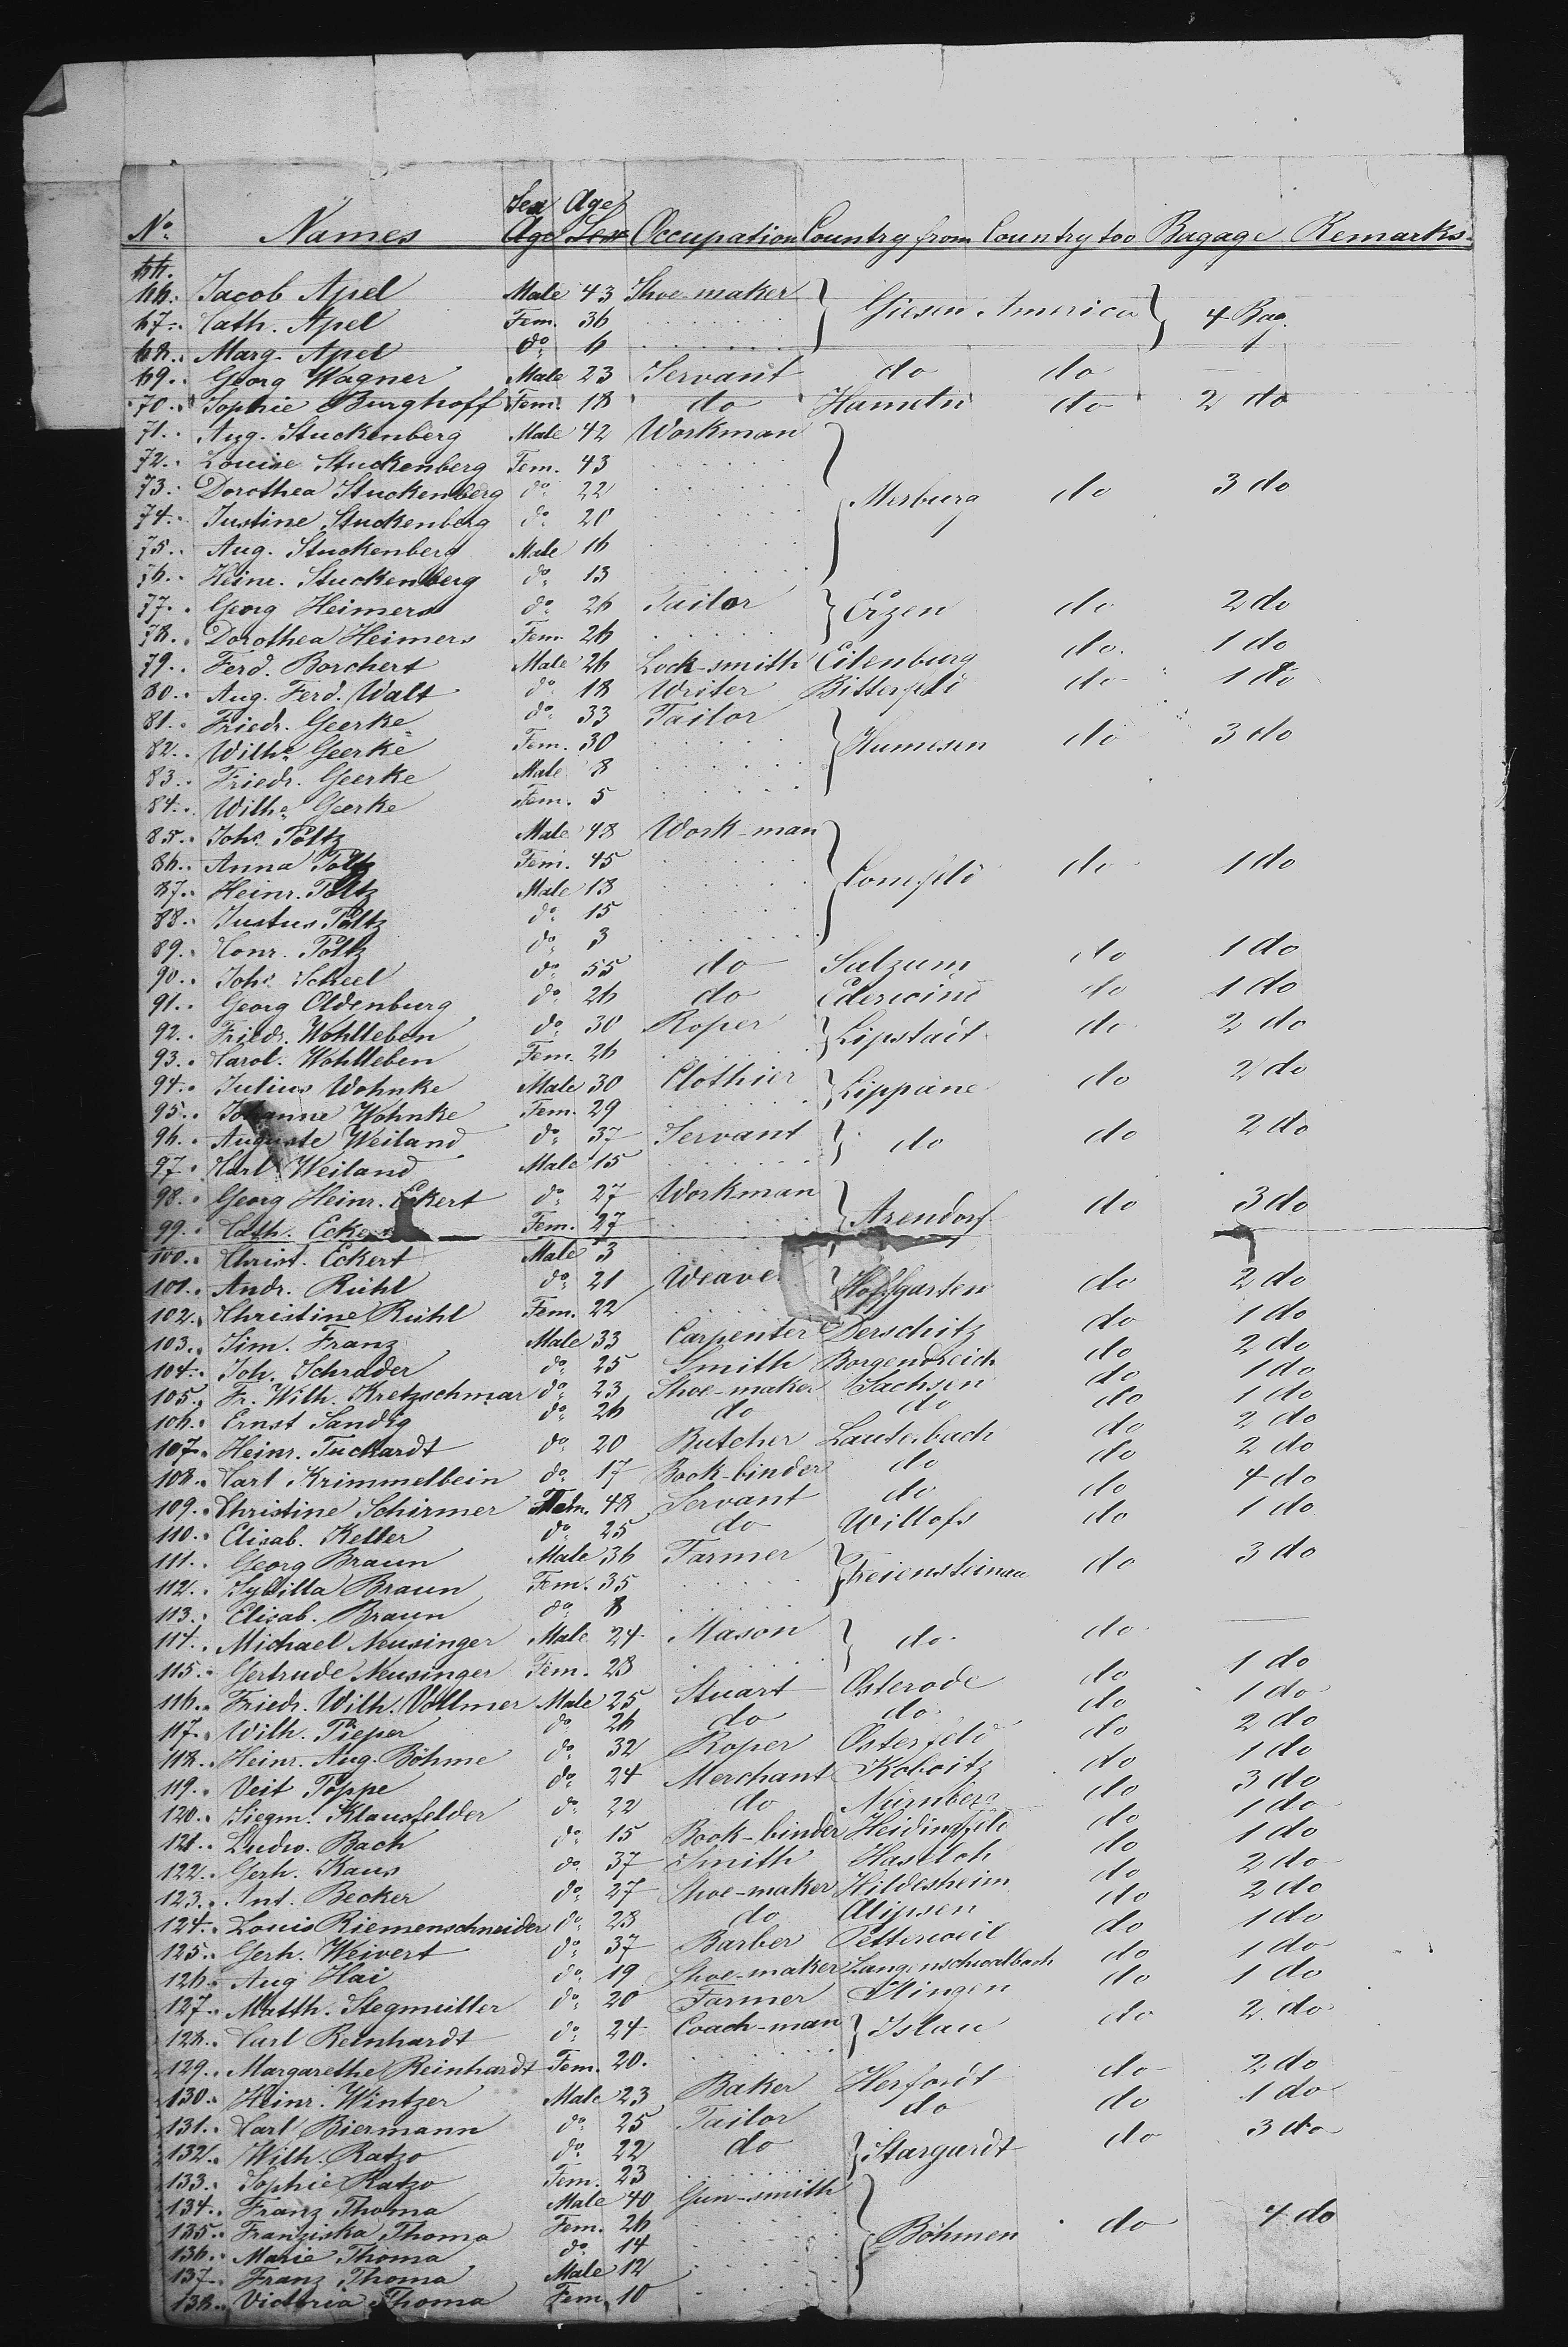 Sex Age
No. Names Age Sex Occupation Country from Country too Bagage Remarks.
66. Jacob Apel Male 43 Shoe-maker Giesen America 4 Bag.
67. Cath. Apel Fem. 36
68. Marg. Apel do 6
69. Georg Wagner Male 23 Servant do do
70. Sophie Burghoff Fem. 18 do Hameln do 2 do
71. Aug. Stuckenberg Male 42 Workman
72. Louise Stuckenberg Fem. 43
73. Dorothea Stuckenberg do 22 Merburg do 3 do
74. Justine Stuckenberg do 20
75. Aug. Stuckenberg Male 16
76. Heinr. Stuckenberg do 13
77. Georg Heimers do 26 Tailor Erzen do 2 do
78. Dorothea Heimers Fem. 26
79. Ferd. Borchert Male 26 Lock-smith Eilenburg do. 1 do
80. Aug. Ferd. Walt do 18 Writer Bitterfeld do 1 do
81. Friedr. Geerke do 33 Tailor
82. Wilhe. Geerke Fem. 30 Humesen do 3 do
83. Friedr. Geerke Male 8
84. Wilhe. Geerke Fem. 5
85. Johs. Poltz Male 48 Work-man
86. Anna Poltz Fem. 45 do 1 do
87. Heinr. Poltz Male 18
88. Justus Poltz do 15
89. Conr. Poltz do 3
90. Johs. Scheel do 55 do Salzum do 1 do
91. Georg Oldenburg do 26 do do 1 do
92. Friedr. Wohlleben do 30 Roper Lipstadt do 2 do
93. Carol. Wohlleben Fem. 26
94. Julius Wohnke Male 30 Clothier Lippäne do 2 do
95. Johanne Wohnke Fem. 29
96. Auguste Weiland do 37 Servant do do 2 do
97. Carl Weiland Male 15
98. Georg Heinr. Eckert do 27 Workman Arendorf do 3 do
99. Cath. Eckert Fem. 27
100. Christ. Eckert Male 3
101. Andr. Rühl do 21 Weaver Hopfgarten do 2 do
102. Christine Rühl Fem. 22
103. Sim. Franz Male 33 Carpenter Derschitz do 1 do
104. Joh. Schrader do 25 Smith Borgendreich do 2 do
105. Fr. Wilh. Kretzschmar do 23 Shoe-maker Sachsen do 1 do
106. Ernst Sandig do 26 do do do 1 do
107. Heinr. Tuchardt do 20 Butcher Lauterbach do 2 do
108. Carl Krimmelbein do 17 Book-binder do do 2 do
109. Christine Schirmer Fem. 48 Servant do do 4 do
110. Elisab. Keller do 25 do Willofs do 1 do
111. Georg Braun Male 36 Farmer Freiensteinau do 3 do
112. Sybilla Braun Fem. 35
113. Elisab. Braun do 8
114. Michael Neusinger Male 24 Mason do do —
115. Gertrude Neusinger Fem. 28
116. Friedr. Wilh. Vollmer Male 25 Stuart Osterode do 1 do
117. Wilh. Pieper do 26 do do do 1 do
118. Heinr. Aug. Böhme do 32 Roper Osterfeld do 2 do
119. Veit Poppe do 24 Merchant do 1 do
120. Siegm. Klausfelder do 22 do Nürnberg do 3 do
121. Ludw. Bach do 15 Book-binder Heidingsfeld do 1 do
122. Gerh. Kaus do 37 Smith Hasloh do 1 do
123. Ant. Becker do 27 Shoe-maker Hildesheim do 2 do
124. Louis Riemenschneider do 28 do do 2 do
125. Gerh. Weivert do 37 Barber Petterweil do 1 do
126. Aug Hai do 19 Shoe-maker Langenschwalbach do 1 do
127. Matth. Stegmüller do 20 Farmer do 1 do
128. Carl Reinhardt do 24 Coach-man Islau do 2 do
129. Margarethe Reinhardt Fem. 20.
130. Heinr. Wintzer Male 23 Baker Herfordt do 2 do
131. Carl Biermann do 25 Tailor do do 1 do
132. Wilh. Ratzo do 22 do Stargardt do 3 do
133. Sophie Ratzo Fem. 23
134. Franz Thoma Male 40 Gun-smith
135. Franziska Thoma Fem. 26 Böhmen do 4 do
136. Marie Thoma do 14
137. Franz Thoma Male 12
138. Victoria Thoma Fem. 10